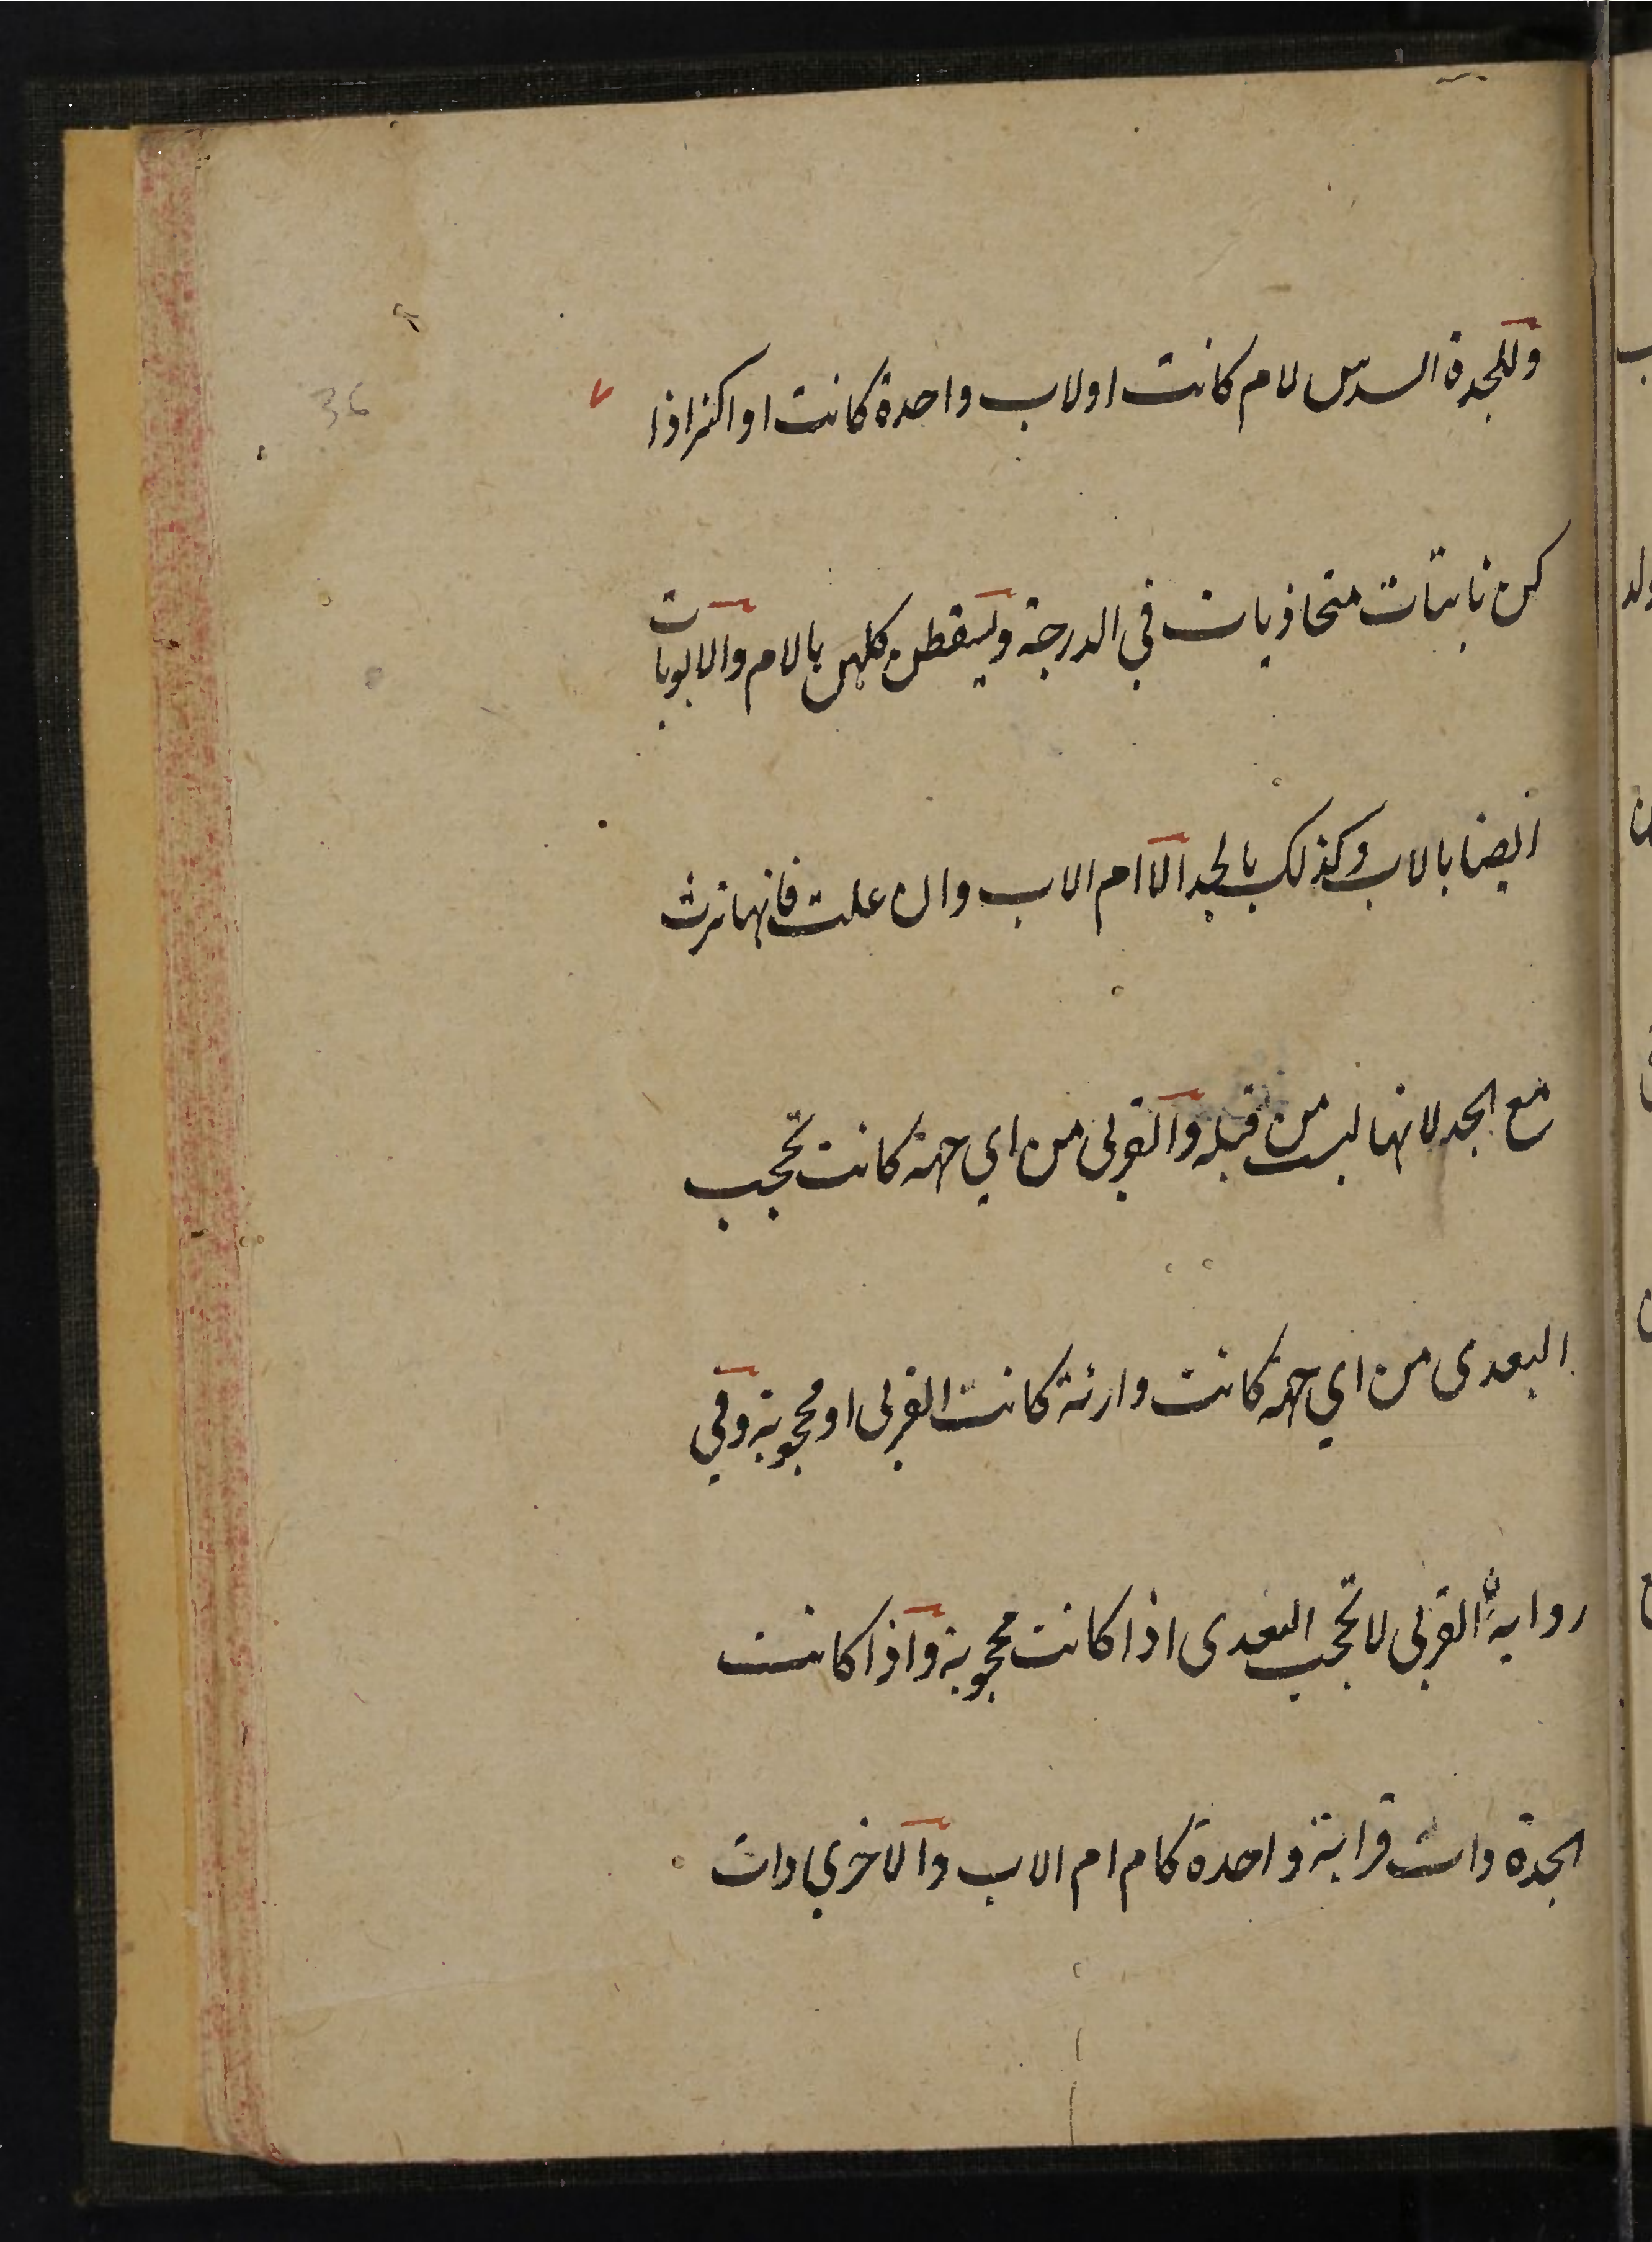 وللجدة السدس لام كانت او لاب واحدة كانت او اكثر اذا
36
كن ثابتات متحاذيات في الدرجة ويسقطن كلهن بالام والابويات
ايضا بالاب وكذلك بالجد الا ام الاب وان علت فانها ترث
مع الجد لانها ليست من قبله والقربى من اي جهة كانت تحجب
البعدى من اي جهة كانت وارثة كانت القربى او محجوبة وفي
رواية القربى لا تحجب البعدى اذا كانت محجوبة واذا كانت
الجدة ذات قرابة واحدة كام ام الاب والاخرى ذات